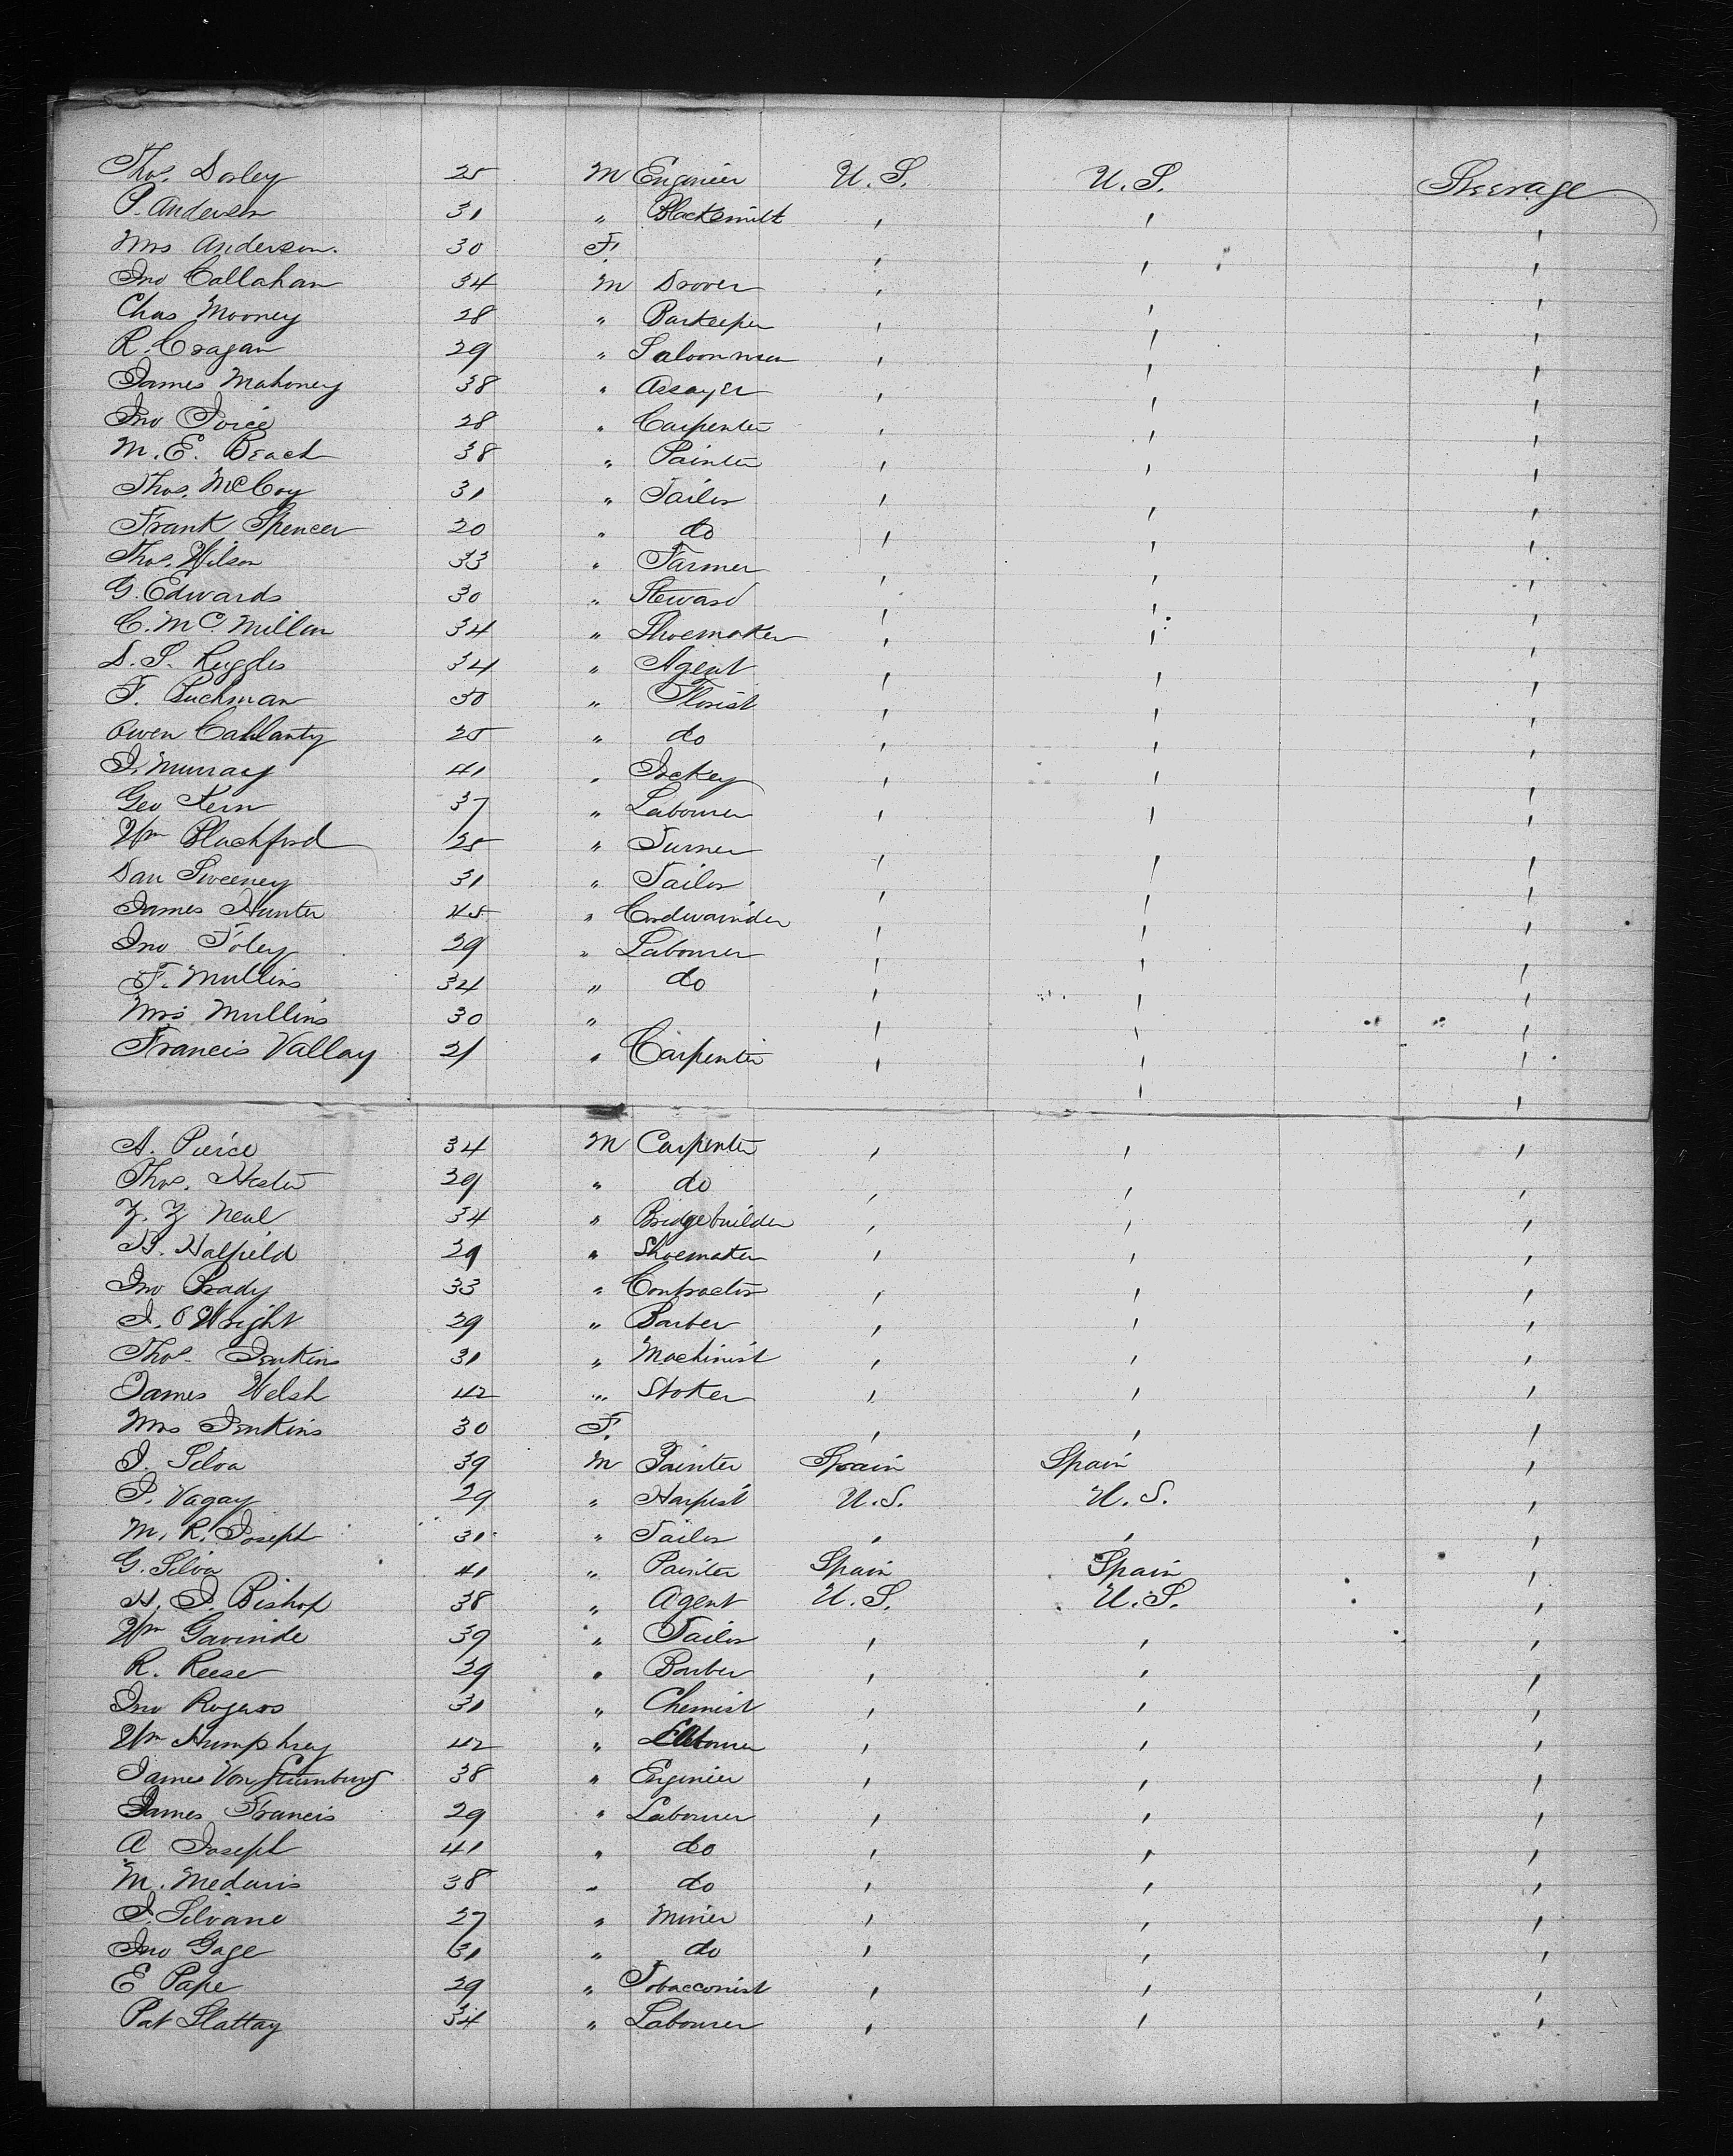 Thos. Dorley 25 M Engineer U.S. U.S. Steerage
P. Anderson 31 " Blacksmith ' ' '
Mrs Anderson. 30 F. ' ' '
Jno Callahan 34 M Drover ' ' '
Chas Mooney 28 " Barkeeper ' ' '
R. Cragan 29 " Saloon man ' ' '
James Mahoney 38 " Assayer ' ' '
Jno Joice 28 " Carpenter ' ' '
M. E. Beach 38 " Painter ' ' '
Thos. McCoy 31 " Tailor ' ' '
Frank Spencer 20 " do ' ' '
Thos. Wilson 33 " Farmer ' ' '
G. Edwards 30 " Steward ' ' '
C. Mc. Millan 34 " Shoemaker ' ' '
D. S. Ruggles 34 " Agent ' ' '
F. Buchman 30 " Florist ' ' '
Owen Callanty 25 " do ' ' '
J. Murray 41 " Jockey ' ' '
Geo Kern 37 " Labourer ' ' '
Wm Blachford 25 " Turner ' ' '
Dan Sweeney 31 " Tailor ' ' '
James Hunter 45 " Cordwainder ' ' '
Jno Foley 29 " Labourer ' ' '
F. Mullins 34 " do ' ' '
Mrs Mullins 30 " ' ' '
Francis Vallay 21 " Carpenter ' ' '
A. Pierce 34 M Carpenter ' ' '
Thos. Hester 29 " do ' ' '
Z. Z Neal 34 " Bridgebuilder ' ' '
B. Halfield 29 " Shoemaker ' ' '
Jno Brady 33 " Contractor ' ' '
J. O Wright 29 " Barber ' ' '
Thos. Jenkins 31 " Machinist ' ' '
James Welsh 42 " Stoker ' ' '
Mrs Jenkins 30 F. ' ' '
J. Silva 39 M Painter Spain Spain '
P. Vagay 29 " Harpist U.S. U.S. '
M. R. Joseph 31 " Tailor ' ' '
G. Silva 41 " Painter Spain Spain '
H. J. Bishop 38 " Agent U.S. U.S. '
Wm Gavinde 39 " Tailor ' ' '
R. Reese 29 " Barber ' ' '
Jno Rogers 31 " Chemist ' ' '
Wm Humphrey 42 " Labourer ' ' '
James Von 38 " Engineer ' ' '
James Francis 29 " Labourer ' ' '
A Joseph 41 " do ' ' '
M. Medaris 38 " do ' ' '
J. Silvane 27 " Miner ' ' '
Jno Gage 31 " do ' ' '
E Pape 29 " Tobacconist ' ' '
Pat Slattay 34 " Labourer ' ' '